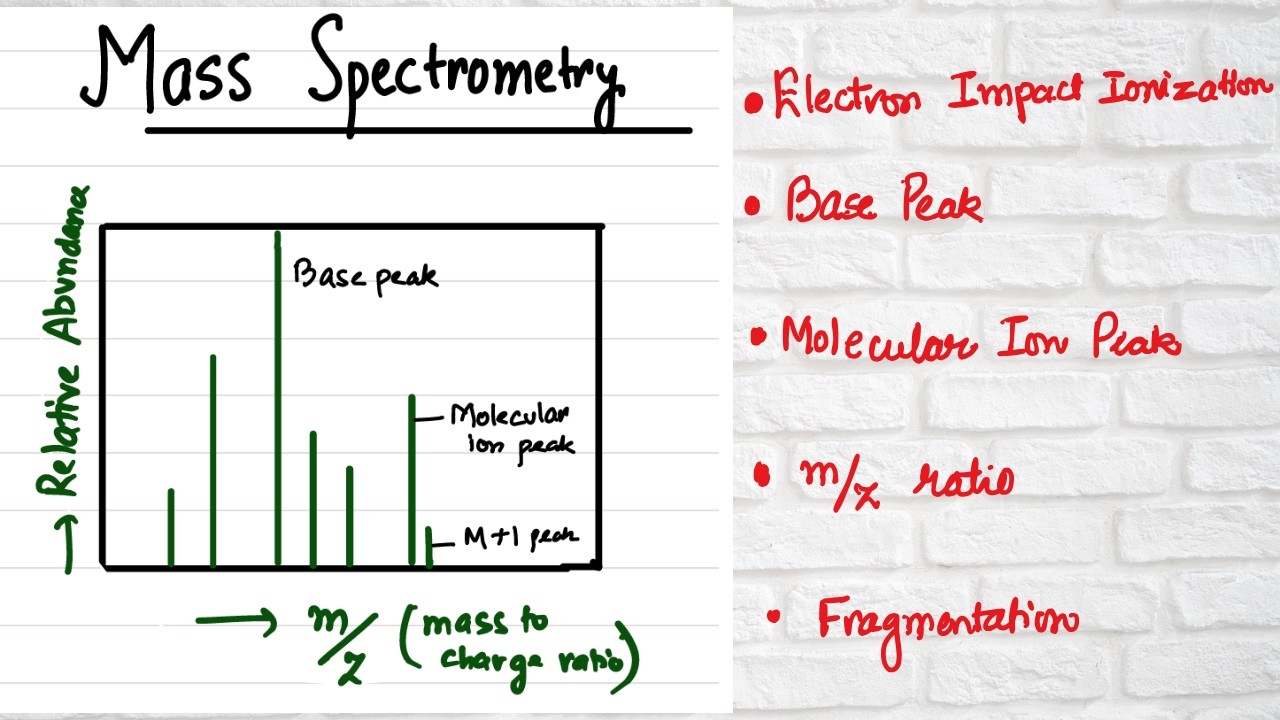 Mass Spectrometry
→ Relative Abundance
Base peak
Molecular
ion peak
M+1 peak
→ m/z (mass to
charge ratio)
• Electron Impact Ionization
• Base Peak
• Molecular Ion Peak
• m/z ratio
• Fragmentation